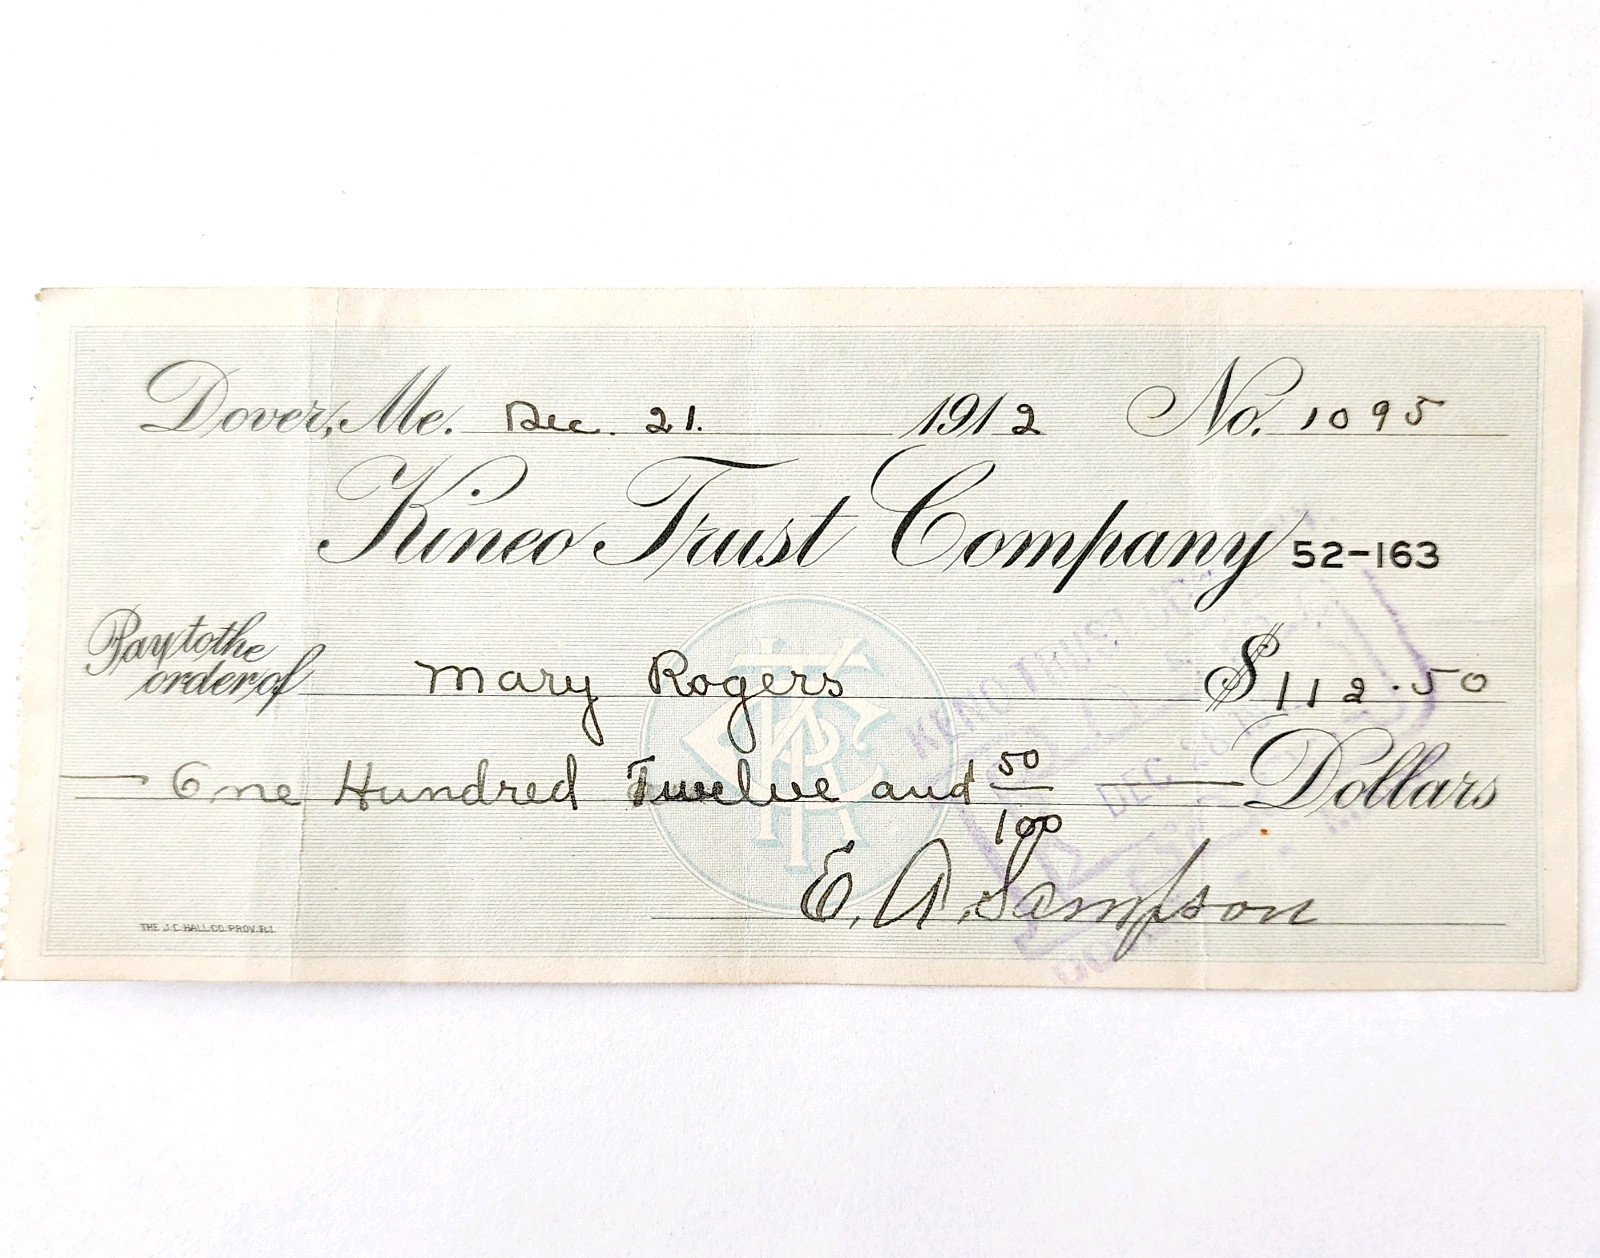 Dover, Me. Dec. 21. 1912 No. 1095
Kineo Trust Company 52-163
Pay to the
order of Mary Rogers $112.50
One Hundred Twelve and 50/100 Dollars
E. A. Sampson
THE J.C. HALL CO. PROV. R.I.
TRUST
DEC 28